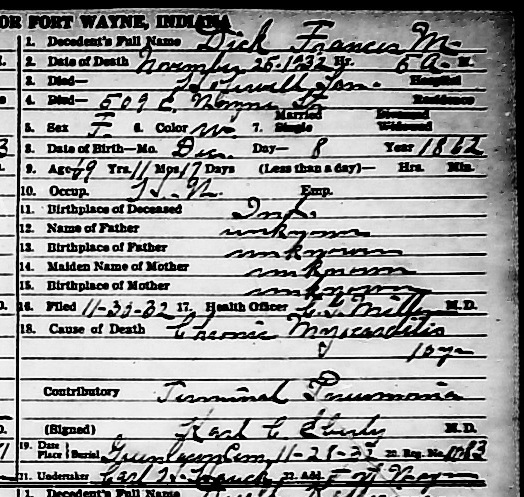 OR FORT WAYNE, INDIANA
1. Decedent's Full Name Dick Frances M.
2. Date of Death November 25-1932 Hr. 6 A. M.
3. Died— Hospital
4. Died— 509 E. Wayne St Residence
5. Sex F 6. Color W. 7. Married Single Divorced Widowed
8. Date of Birth—Mo. Dec. Day— 8 Year 1862
9. Age 69 Yrs. 11 Mos. 17 Days (Less than a day)— Hrs. Min.
10. Occup. H.W. Emp.
11. Birthplace of Deceased Ind.
12. Name of Father unknown
13. Birthplace of Father unknown
14. Maiden Name of Mother unknown
15. Birthplace of Mother unknown
16. Filed 11-30-32 17. Health Officer Miller M.D.
18. Cause of Death Chronic Myocarditis
10 y
Contributory Terminal Pneumonia
(Signed) Karl C. Eberly M.D.
19. Date Place Burial Greenlawn Cem 11-28-32 20. Reg. No.
21. Undertaker Carl 22. Add. Ft Wayne
1. Decedent's Full Name